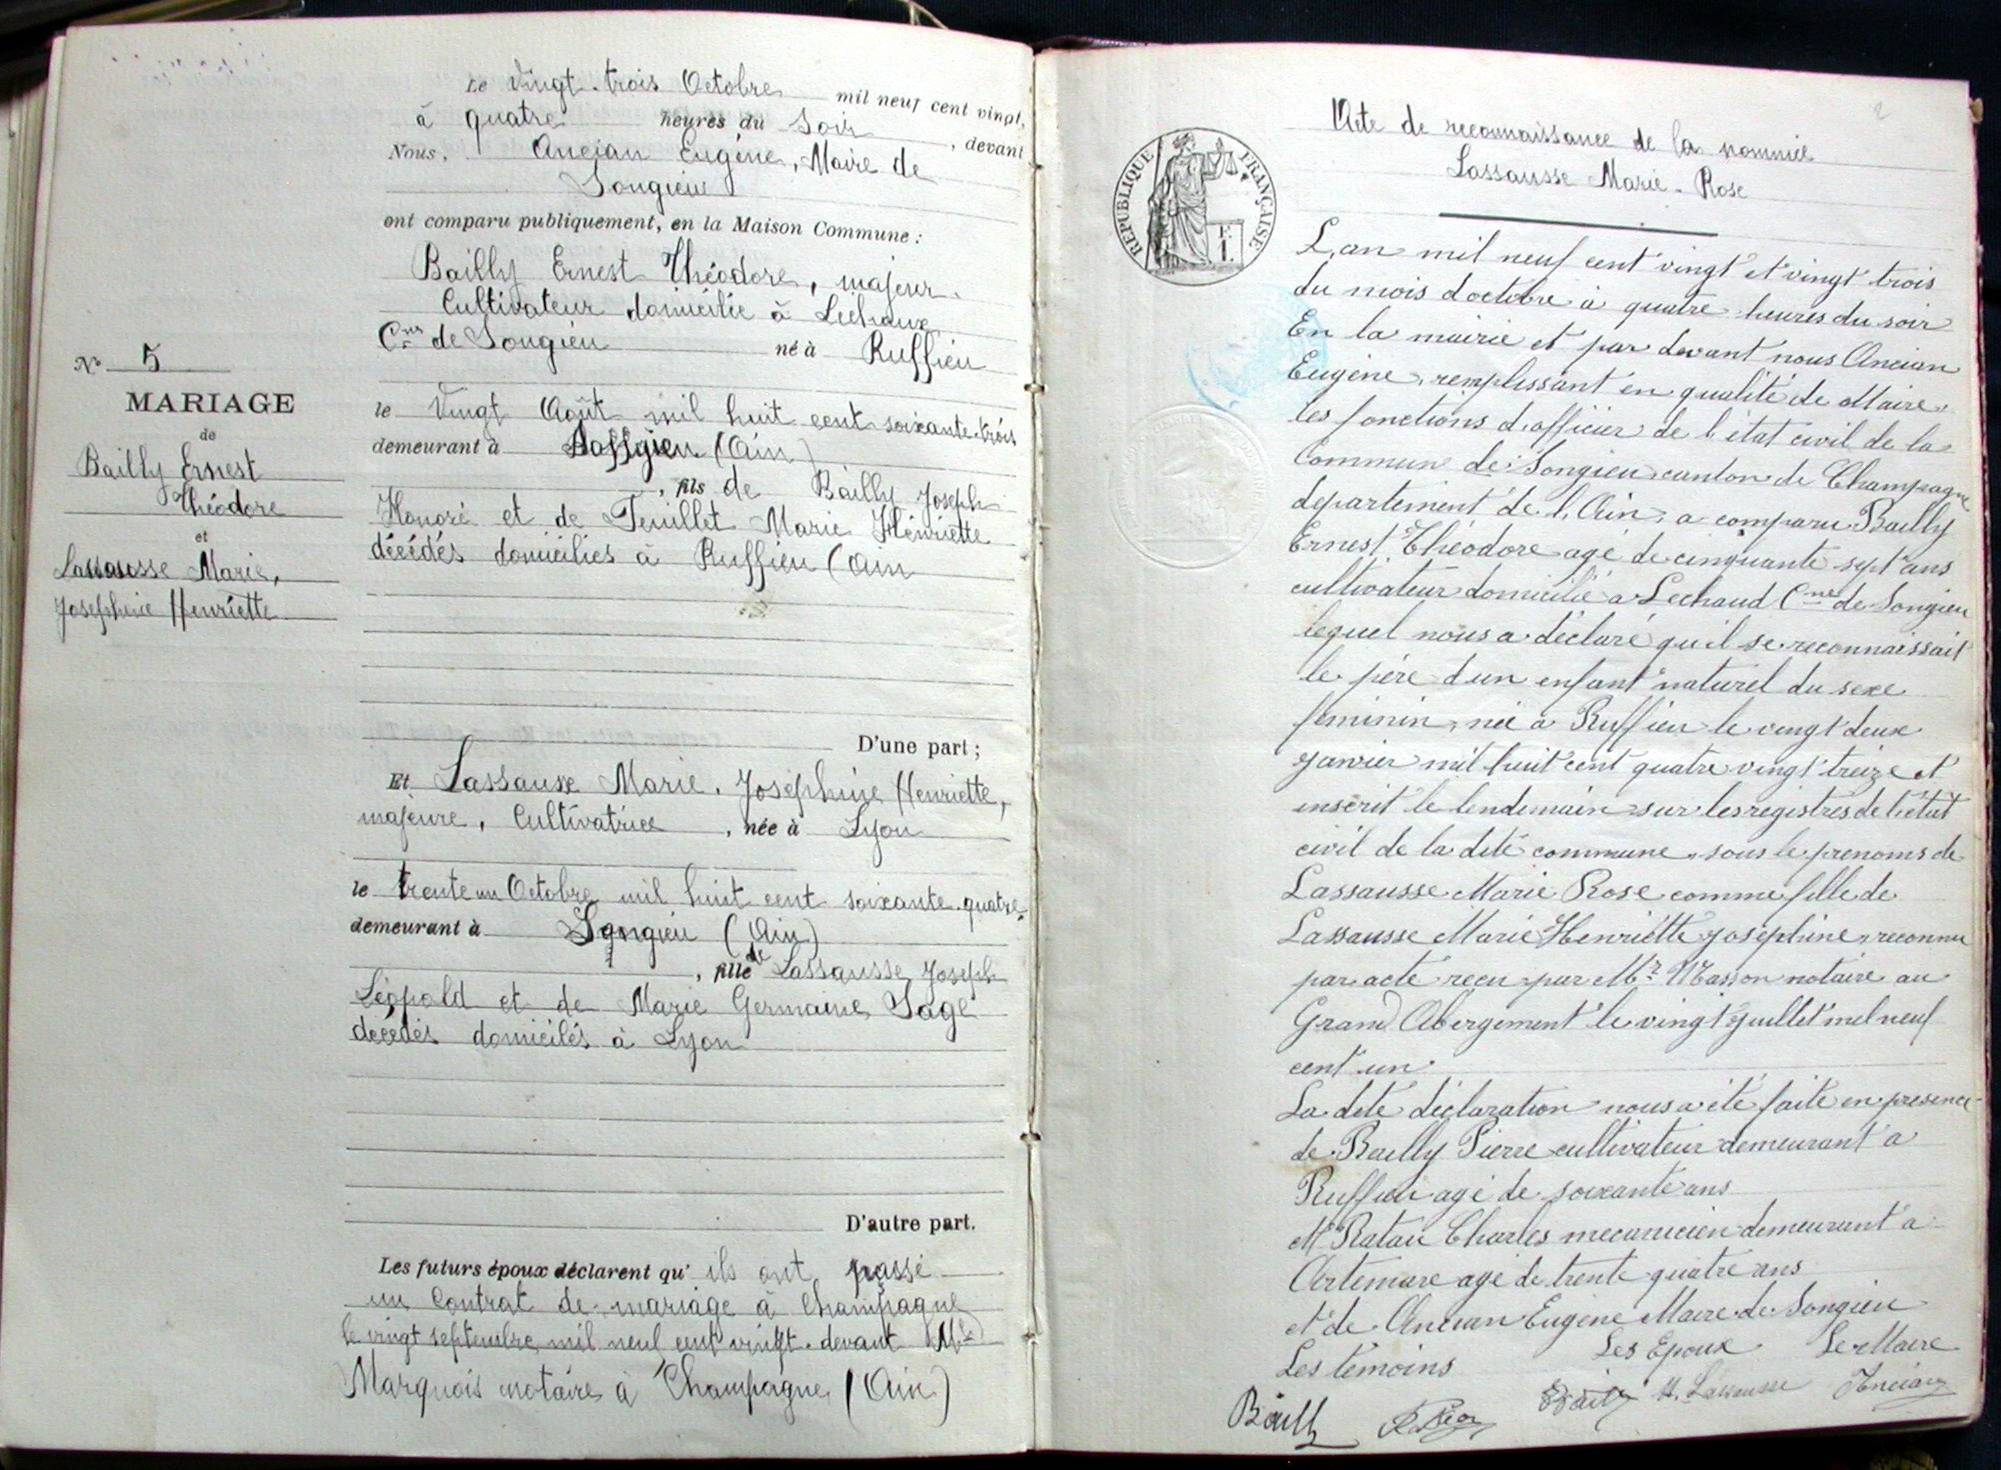 Le Vingt-trois Octobre mil neuf cent vingt,
à quatre heures du Soir, devant
Nous, Ancian Eugène, Maire de
Songieu
ont comparu publiquement, en la Maison Commune :
Bailly Ernest Théodore, majeur.
Cultivateur domicilié à Lichaux
Cne de Songieu né à Ruffieu
le Vingt Août mil huit cent soixante-trois
demeurant à (Ain)
, fils de Bailly Joseph
Honoré et de Feuillet Marie Hénriette
décédés domicilies à Ruffieu (Ain
D'une part ;
Et Lassausse Marie. Joséphine Henriette,
majeure, Cultivatrice, née à Lyon
le trente un Octobre mil huit cent soixante-quatre
demeurant à Songieu (Ain)
, fille de Lassausse Joseph
Léopold et de Marie Germaine Sage
décédés domicilés à Lyon
D'autre part.
Les futurs époux déclarent qu' ils ont passé
un Contrat de mariage à Champagne
le vingt septembre mil neuf cent vingt. devant Me
Marquois notaire à Champagne (Ain)
No 5
MARIAGE
de
Bailly Ernest
Théodore
et
Lassausse Marie,
Joséphine Henriette
2
Acte de reconnaissance de la nommée
Lassausse Marie-Rose
RÉPUBLIQUE FRANÇAISE
F.
1.
L'an mil neuf cent vingt et vingt trois
du mois d'octobre à quatre heures du soir
En la mairie et par devant nous Ancian
Eugène, remplissant en qualité de Maire
les fonctions d'officier de l'état civil de la
Commune de Songieu canton de Champagne
departement de l'Ain, a comparu Bailly
Ernest Théodore agé de cinquante sept ans
cultivateur domicilié a Lechaud Cne de Songieu
lequel nous a déclaré qu'il se reconnaissait
le père d'un enfant naturel du sexe
feminin, née a Ruffieu le vingt deux
janvier mil huit cent quatre vingt treize et
inscrit le lendemain sur les registres de l'état
civil de la dite commune, sous le prenoms de
Lassausse Marie Rose comme fille de
Lassausse Marie Henriette Joséphine, reconnu
par acte reçu par Mr Masson notaire au
Grand Abergement le vingt juillet mil neuf
cent un
La dite déclaration nous a été faite en presence
de Bailly Pierre cultivateur demeurant a
Ruffieu agé de soixante ans
Mr Charles mecanicien demeurant a
Artemare agé de trente quatre ans
et de Ancian Eugène Maire de Songieu
Les témoins Les Epoux Le Maire
Bailly Bailly H. Lassausse Ancian